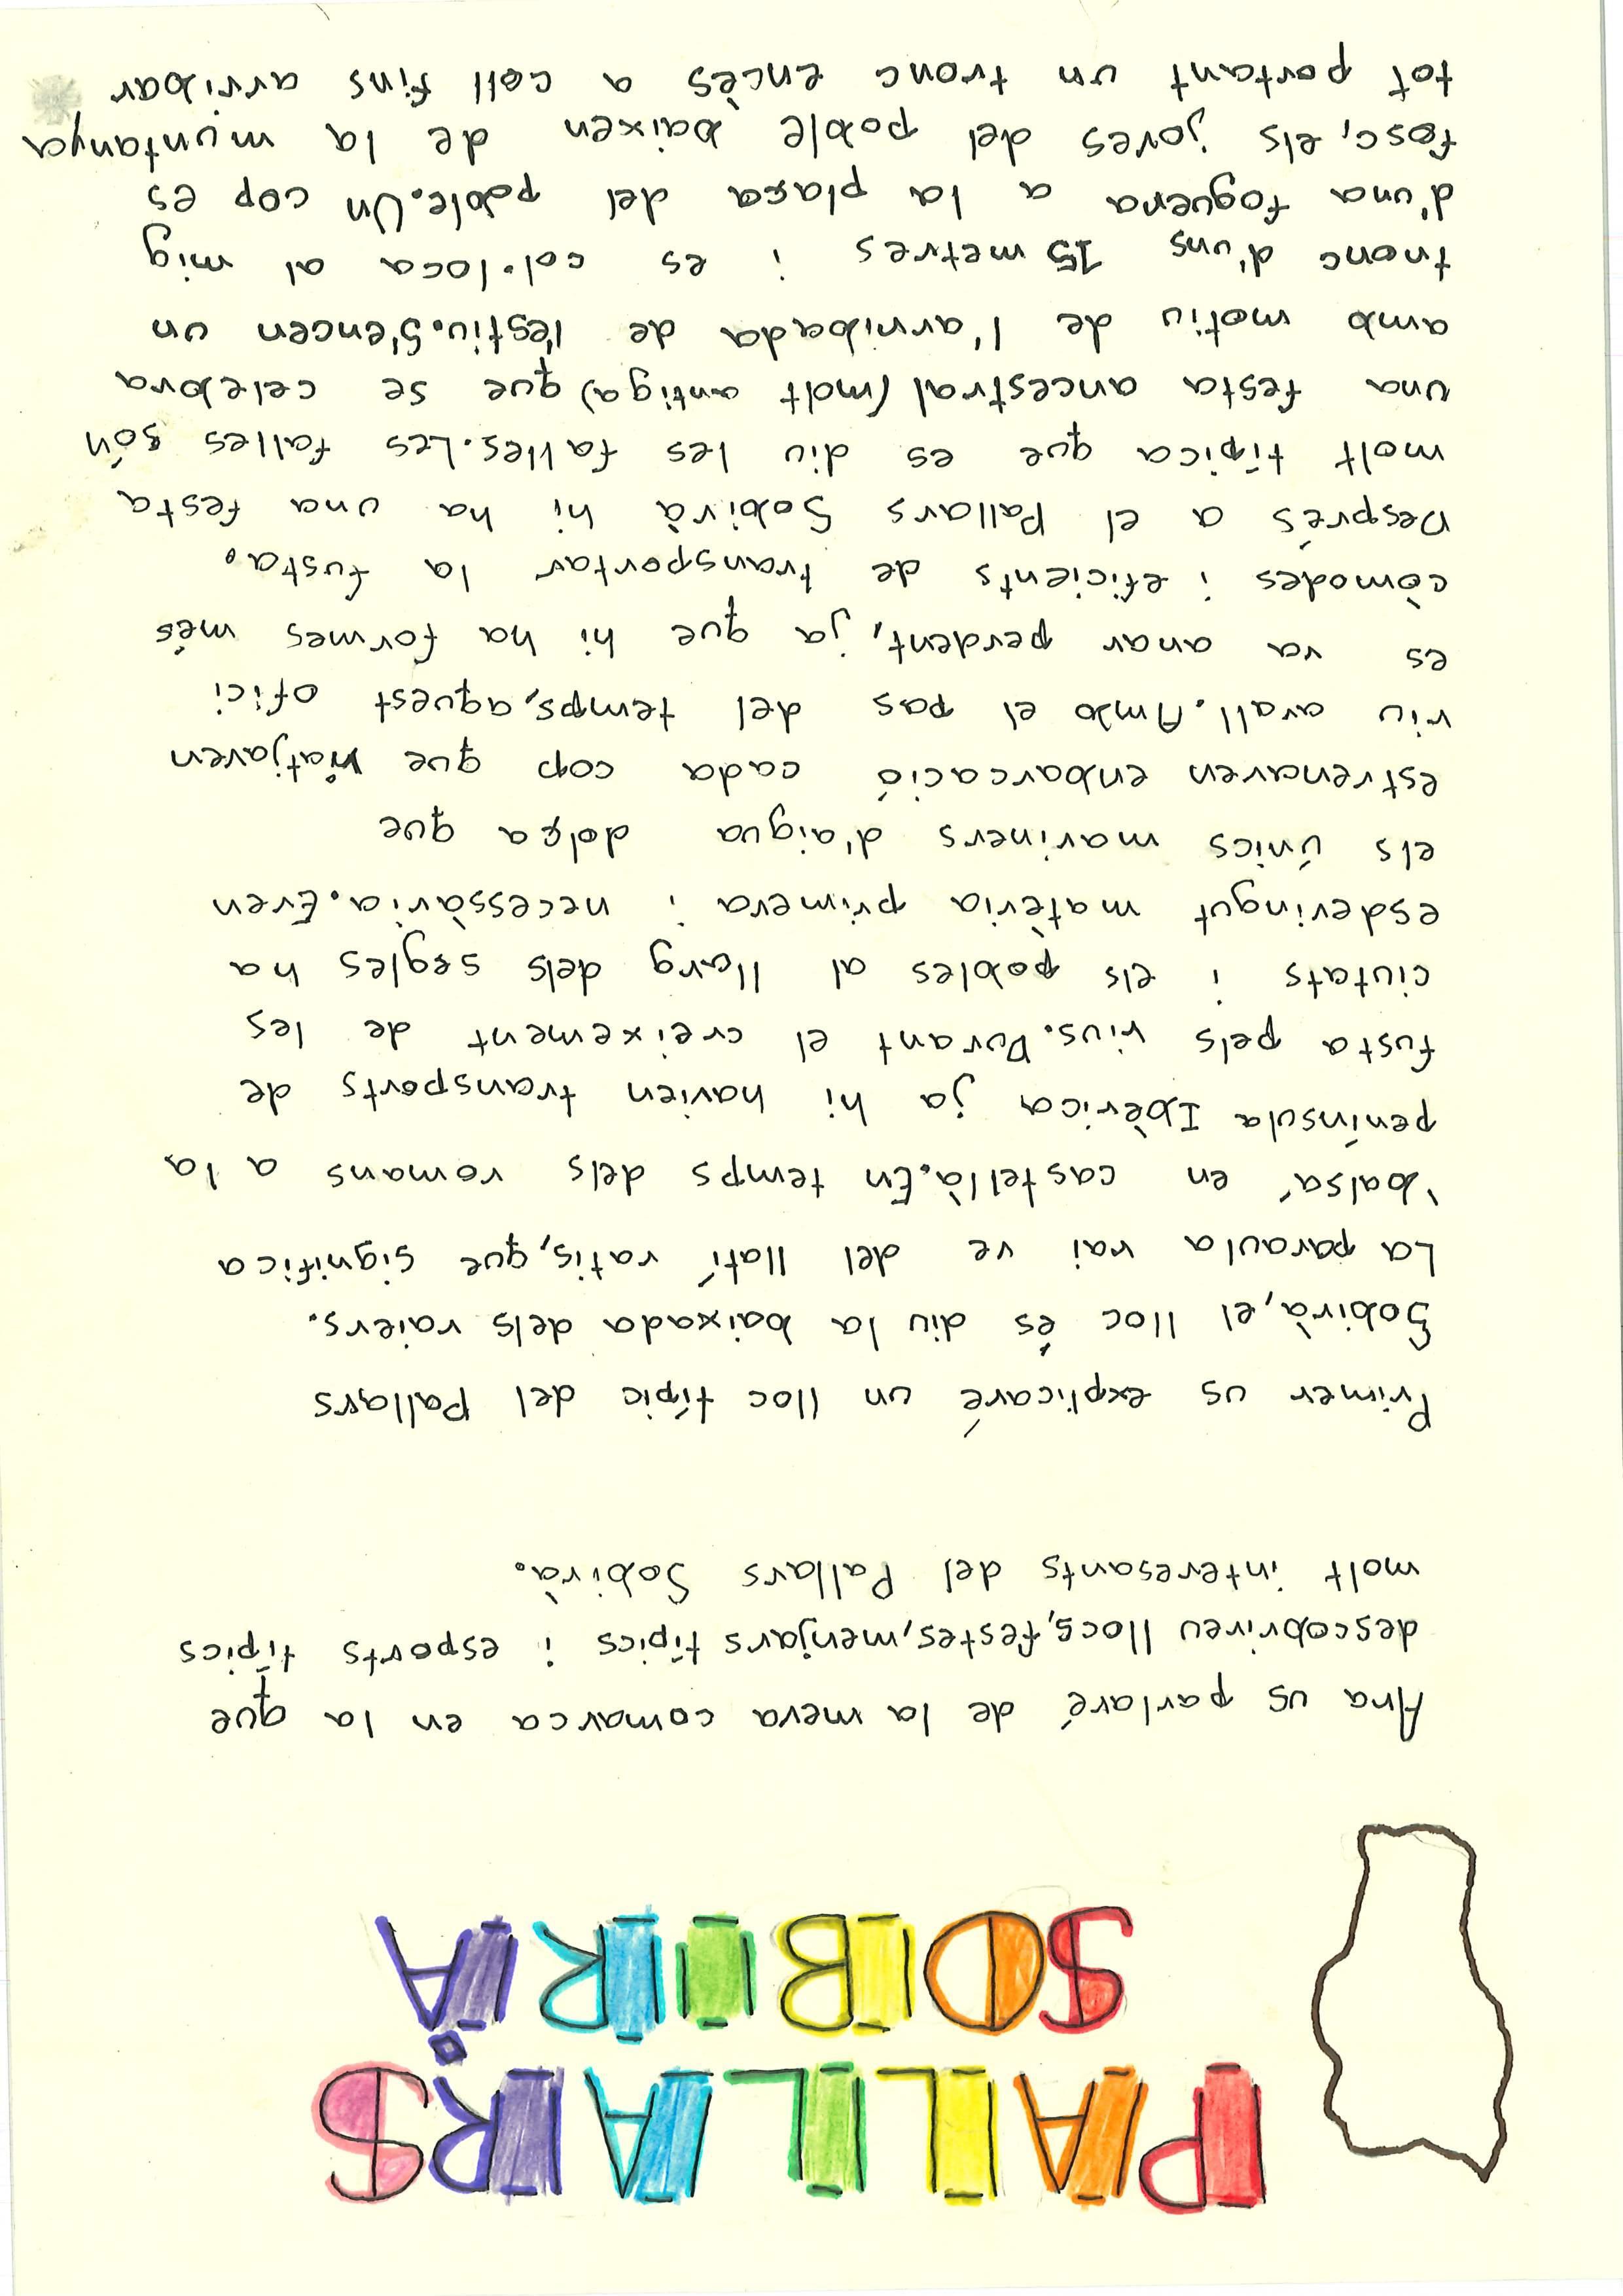 PALLARS
SOBIRÀ
Ara us parlaré de la meva comarca en la que
descobrireu llocs, festes, menjars típics i esports típics
molt interesants del Pallars Sobirà.
Primer us explicaré un lloc típic del Pallars
Sobirà, el lloc és diu la baixada dels raiers.
La paraula rai ve del llatí ratis, que significa
'balsa' en castellà. En temps dels romans a la
península Ibèrica ja hi havien transports de
fusta pels rius. Durant el creixement de les
ciutats i els pobles al llarg dels segles ha
esdevingut matèria primera i necessària. Eren
els únics mariners d'aigua dolça que
estrenaven enbarcació cada cop que viatjaven
riu avall. Amb el pas del temps, aquest ofici
es va anar perdent, ja que hi ha formes més
còmodes i eficients de transportar la fusta.
Després a el Pallars Sobirà hi ha una festa
molt típica que es diu les falles. Les falles són
una festa ancestral (molt antiga) que se celebra
amb motiu de l'arribada de l'estiu. S'encen un
tronc d'uns 15 metres i es col·loca al mig
d'una foguera a la plaça del poble. Un cop es
fosc, els joves del poble baixen de la muntanya
tot portant un tronc encès a coll fins arribar